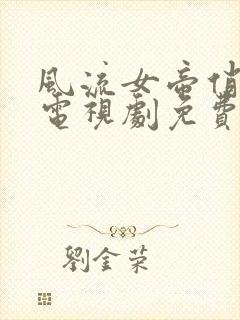 風流女帝俏
電視劇免費
劉金榮